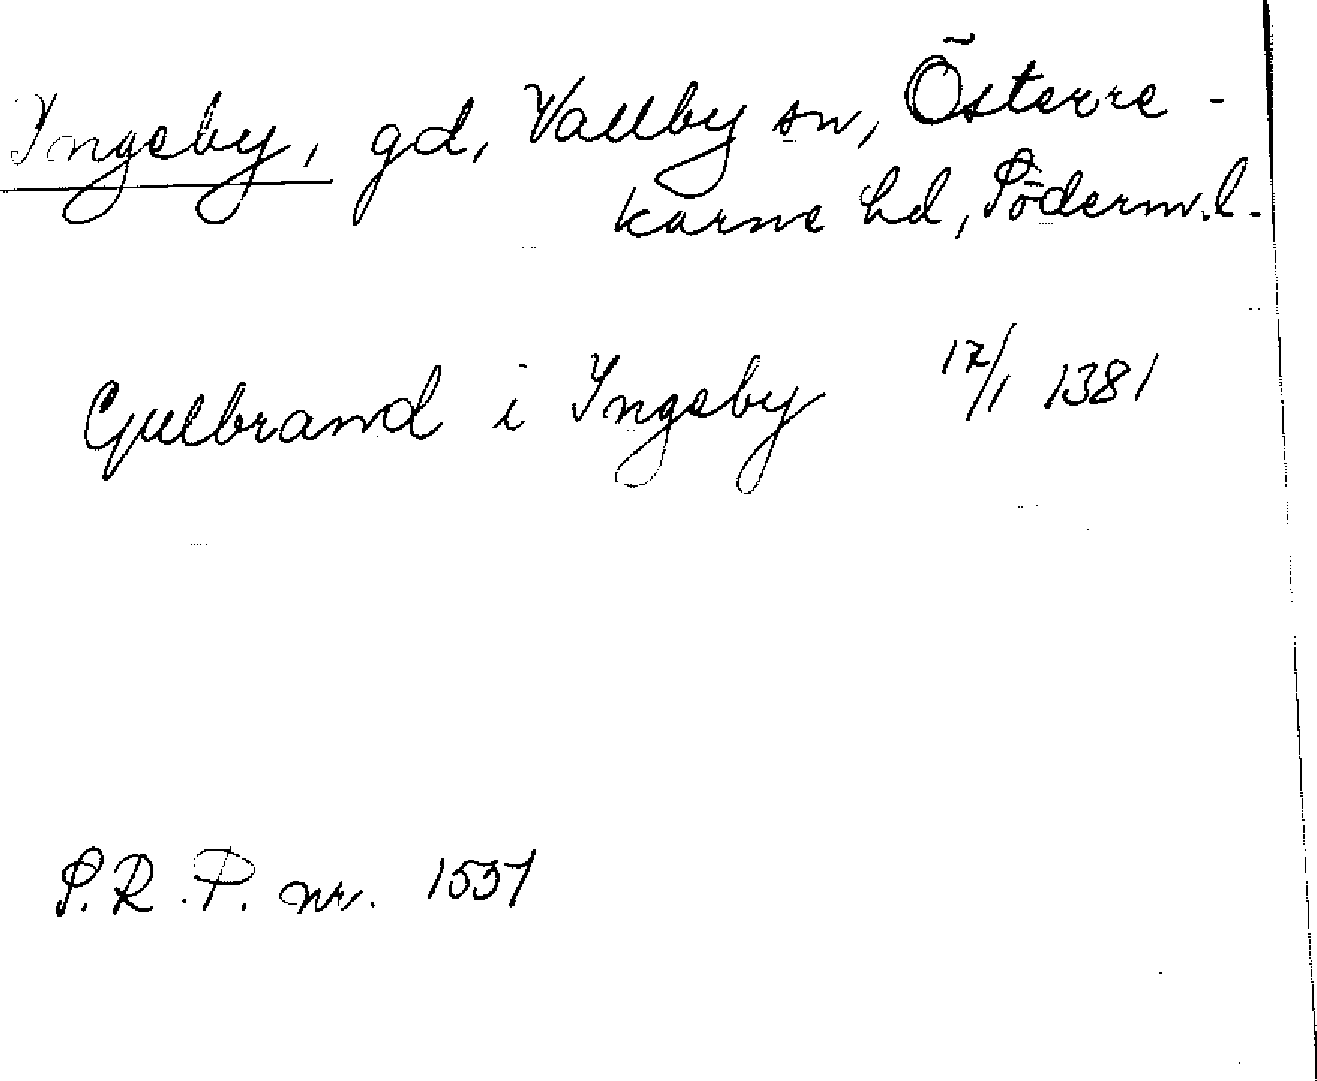 Ingeby, gd, Vallby sn, Österre-
karne hd, Söderm.l.
Gulbrand i Ingeby 17/1 1381
S.R.P. nr. 1537